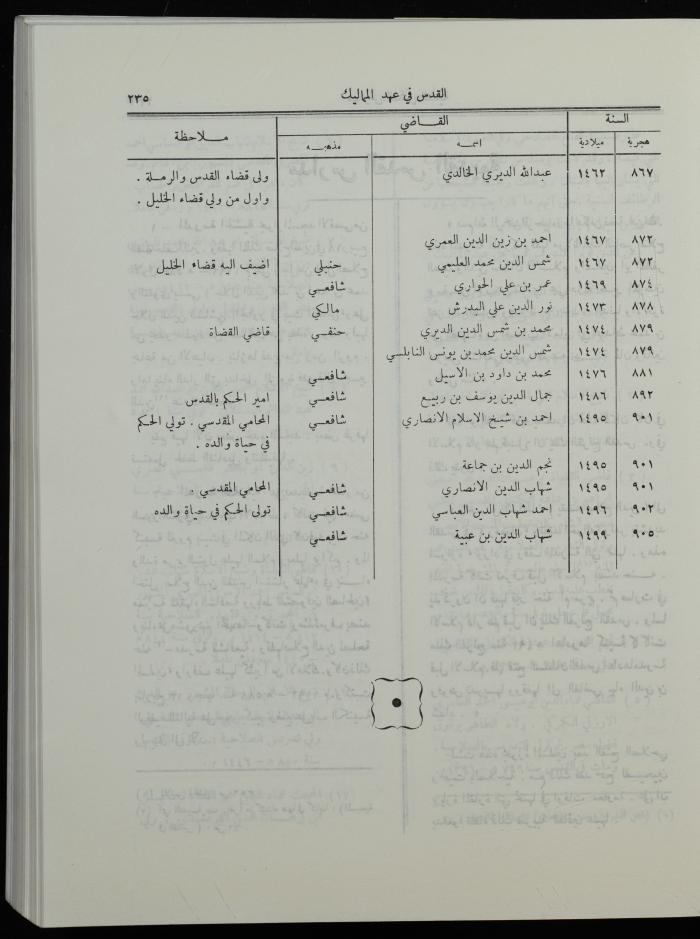 القدس في عهد المماليك ٢٣٥
السنة القـــاضي مــلاحظة
هجرية ميلادية اسمـــه مذهبــه
٨٦٧ ١٤٦٢ عبدالله الديري الخالدي ولى قضاء القدس والرملة .
واول من ولي قضاء الخليل .
٨٧٢ ١٤٦٧ احمد بن زين الدين العمري
٨٧٢ ١٤٦٧ شمس الدين محمد العليمي حنبلي اضيف اليه قضاء الخليل
٨٧٤ ١٤٦٩ عمر بن علي الحواري شافعــي
٨٧٨ ١٤٧٣ نور الدين علي البدرش مالــكي
٨٧٩ ١٤٧٤ محمد بن شمس الدين الديري حنفــي قاضي القضاة
٨٧٩ ١٤٧٤ شمس الدين محمد بن يونس النابلسي
٨٨١ ١٤٧٦ محمد بن داود بن الاسيل شافعــي
٨٩٢ ١٤٨٦ جمال الدين يوسف بن ربيع شافعــي امير الحكم بالقدس
٩٠١ ١٤٩٥ احمد بن شيخ الاسلام الانصاري شافعــي المحامي المقدسي . تولي الحكم
في حياة والده .
٩٠١ ١٤٩٥ نجم الدين بن جماعة
٩٠١ ١٤٩٥ شهاب الدين الانصاري شافعــي المحامي المقدسي .
٩٠٢ ١٤٩٦ احمد شهاب الدين العباسي شافعــي تولى الحكم في حياة والده
٩٠٥ ١٤٩٩ شهاب الدين بن عبية شافعــي